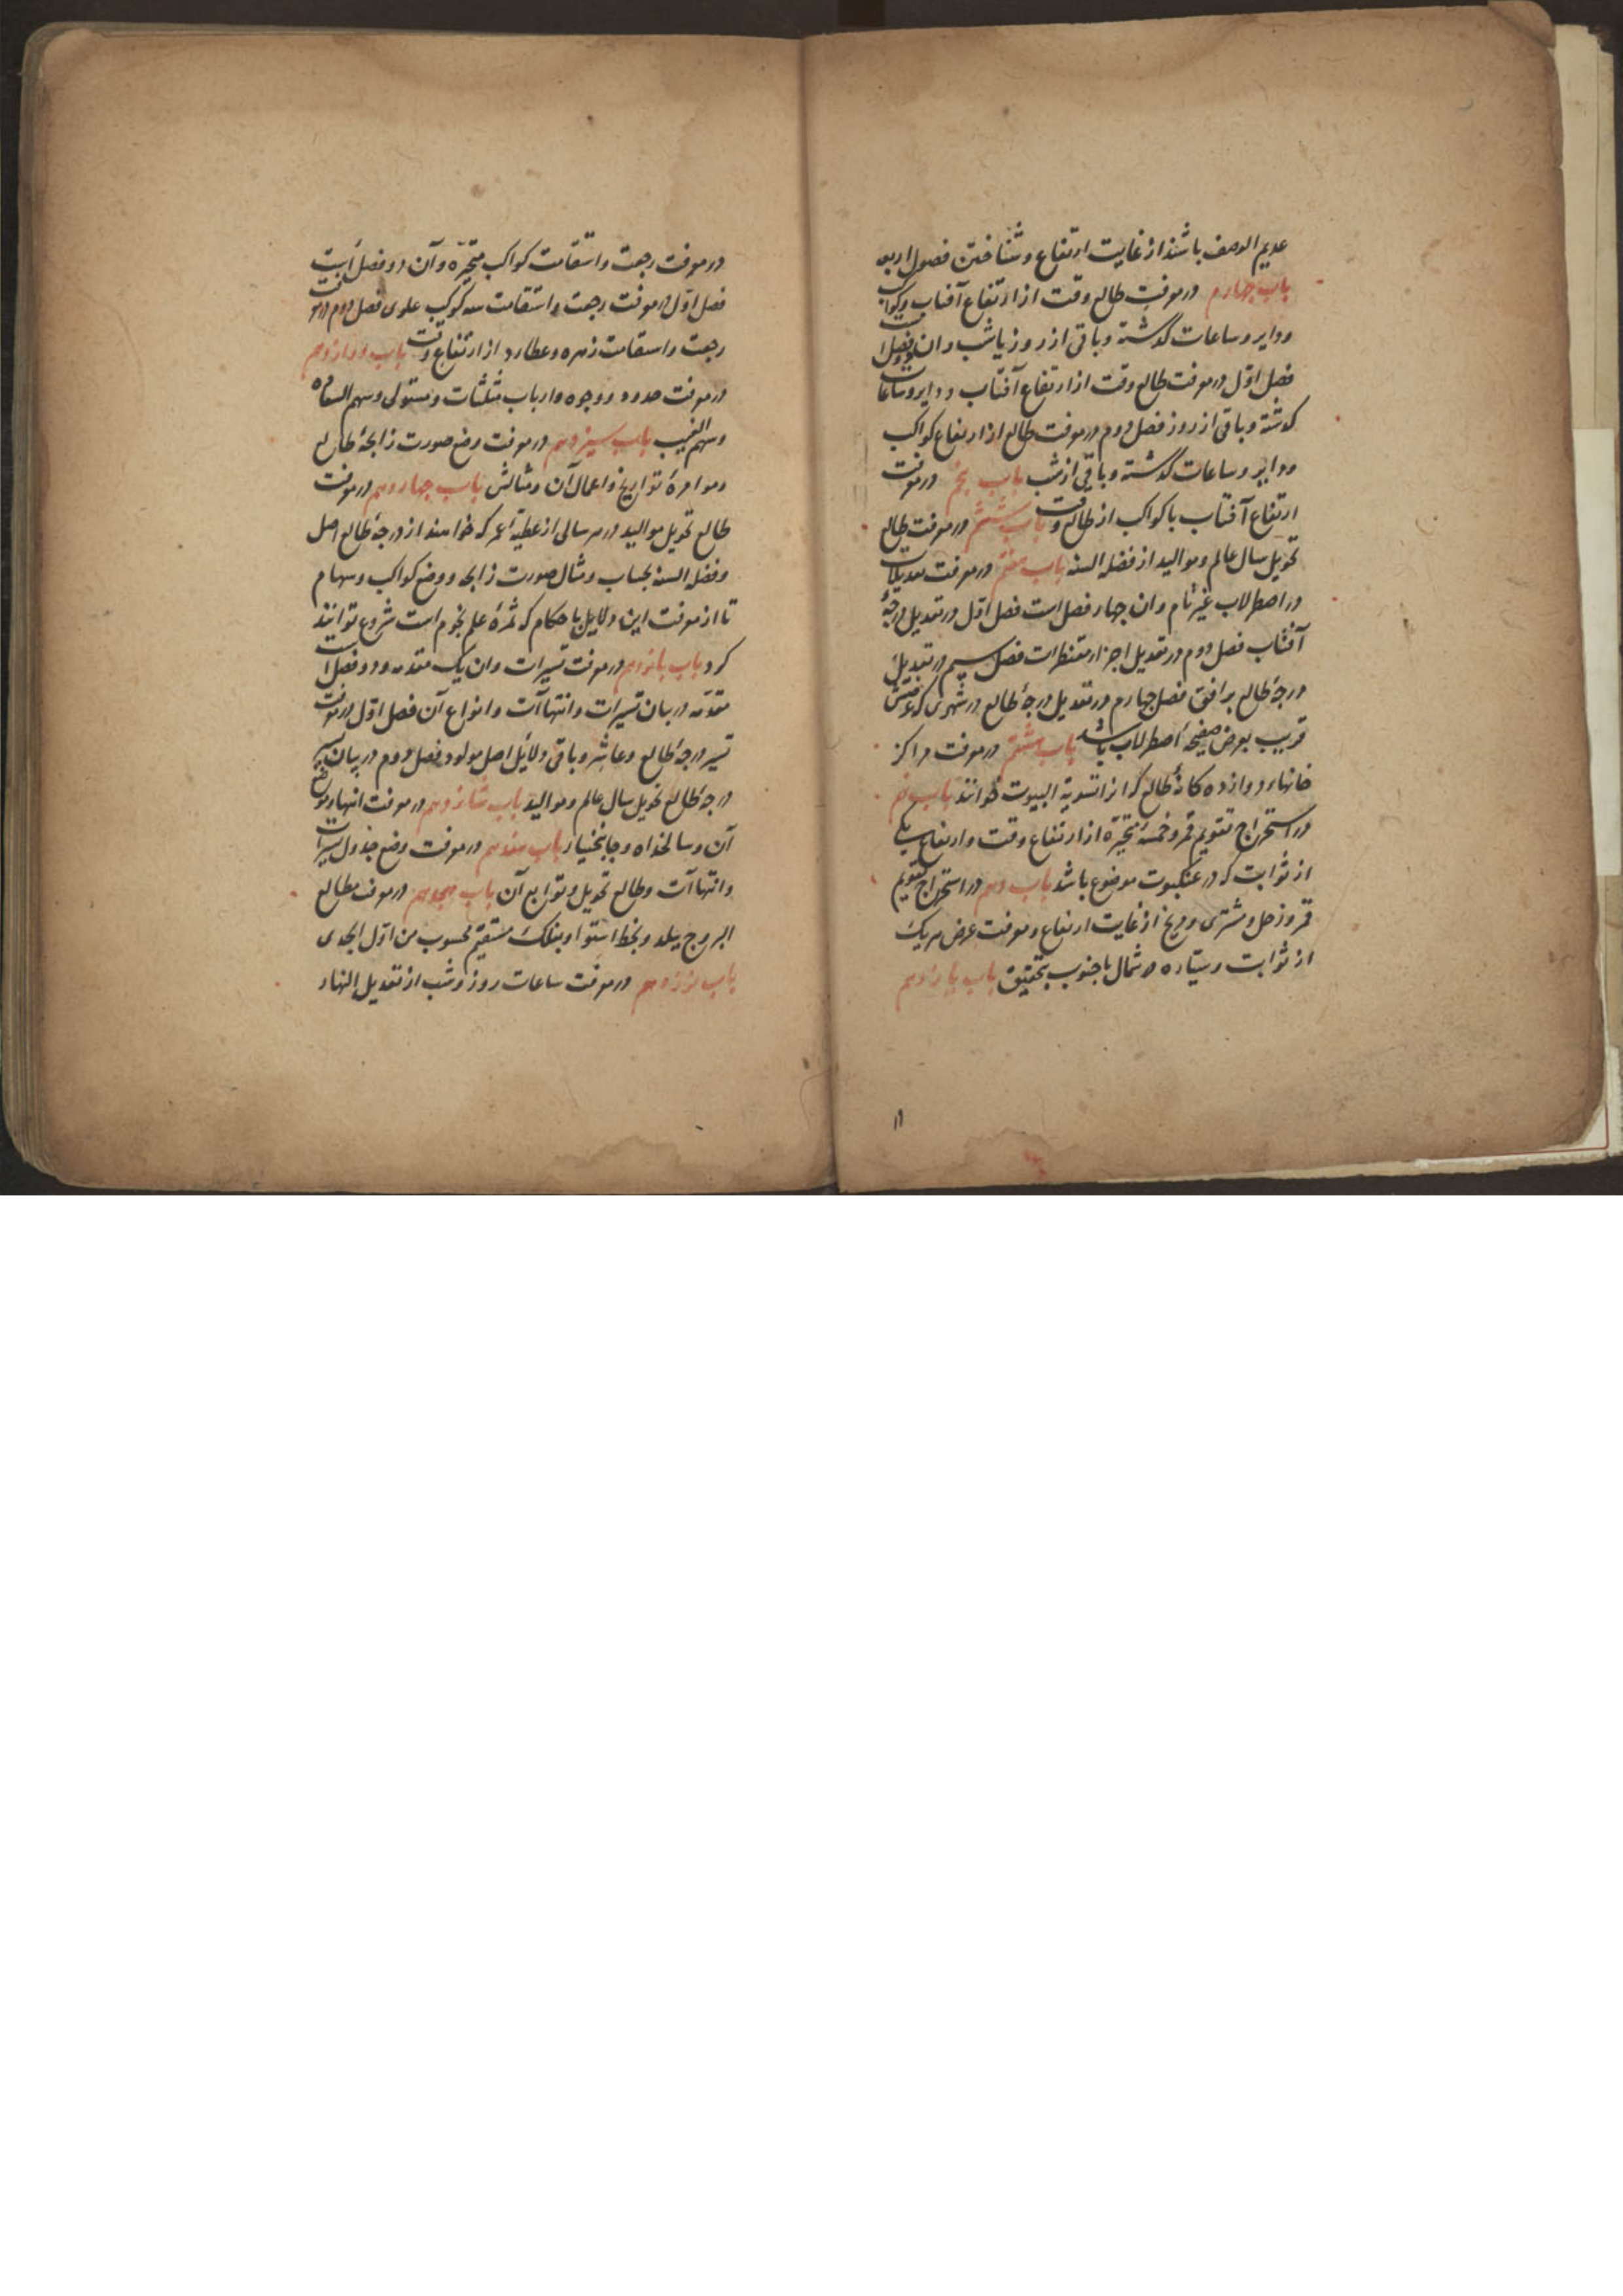 عدیم العرض باشند از غایت ارتفاع و شناختن فصول اربعه
باب چهارم در معرفت طالع وقت از ارتفاع آفتاب و کواکب
و دایر و ساعات گذشته و باقی از روز یا شب و ان دو فصل است
فصل اول در معرفت طالع وقت از ارتفاع آفتاب و دایر و ساعات
گذشته و باقی از روز فصل دوم در معرفت طالع از ارتفاع کواکب
و دایر و ساعات گذشته و باقی از شب باب پنجم در معرفت
ارتفاع آفتاب یا کواکب از طالع وقت باب ششم در معرفت طالع
تحویل سال عالم و موالید از فضله السنه باب هفتم در معرفت تعدیلات
در اصطرلاب غیر تام و ان چهار فصل است فصل اول در تعدیل درجهٔ
آفتاب فصل دوم در تعدیل اجزاء مقنطرات فصل سیم در تعدیل
درجهٔ طالع بر افق فصل چهارم در تعدیل درجهٔ طالع در شهری که عرضش
قریب بعرض صفیحهٔ اصطرلاب باشد باب هشتم در معرفت مراکز
خانهاء دوازده کانهٔ طالع که انرا تسویة البیوت خوانند باب نهم
در استخراج تقویم قمر و خمسهٔ متحیّره از ارتفاع وقت و ارتفاع یکی
از ثوابت که در عنکبوت موضوع باشد باب دهم در استخراج تقویم
قمر و زحل و مشتری و مریخ از غایت ارتفاع و معرفت عرض هریک
از ثوابت و سیّاره در شمال یا جنوب بتحقیق باب یازدهم
۱۱
در معرفت رجعت و استقامت کواکب متحیّره و آن دو فصل است
فصل اوّل در معرفت رجعت و استقامت سه کوکب علوی فصل دوم در معرفت
رجعت و استقامت زهره و عطارد از ارتفاع وقت باب دوازدهم
در معرفت حدود و وجوه و ارباب مثلثات و مستولی و سهم السعاده
و سهم الغیب باب سیزدهم در معرفت وضع صورت زایجهٔ طالع
و موامرهٔ تواریخ و اعمال آن و مثالش باب چهاردهم در معرفت
طالع تحویل موالید در هر سالی از عطیّهٔ عمر که خواهند از درجهٔ طالع اصل
و فضله السنه بحساب و مثال صورت زایجه و وضع کواکب و سهام
تا از معرفت این دلایل باحکام که ثمرهٔ علم نجوم است شروع توانند
کرد باب پانزدهم در معرفت تسیرات و ان یک مقدمه و دو فصل است
مقدّمه در بیان تسیرات و انتهاآت و انواع آن فصل اوّل در معرفت
تسیر درجهٔ طالع و عاشر و باقی دلایل اصل مولود فصل دوم در بیان تسیر
درجهٔ طالع تحویل سال عالم و موالید باب شانزدهم در معرفت انتهاء
آن و سالخداه و جانبختیار باب هفدهم در معرفت وضع جدول تسیرات
و انتهاآت و طالع تحویل و توابع آن باب هجدهم در معرفت مطالع
البروج ببلد و بخط استوا و بفلک مستقیم محسوب من اوّل الجدی
باب نوزدهم در معرفت ساعات روز و شب از تعدیل النهار